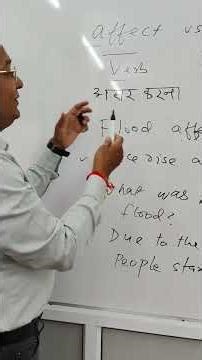 affect vs
Verb
असर करना
Flood affe
rise a
What was
flood?
Due to the
People star